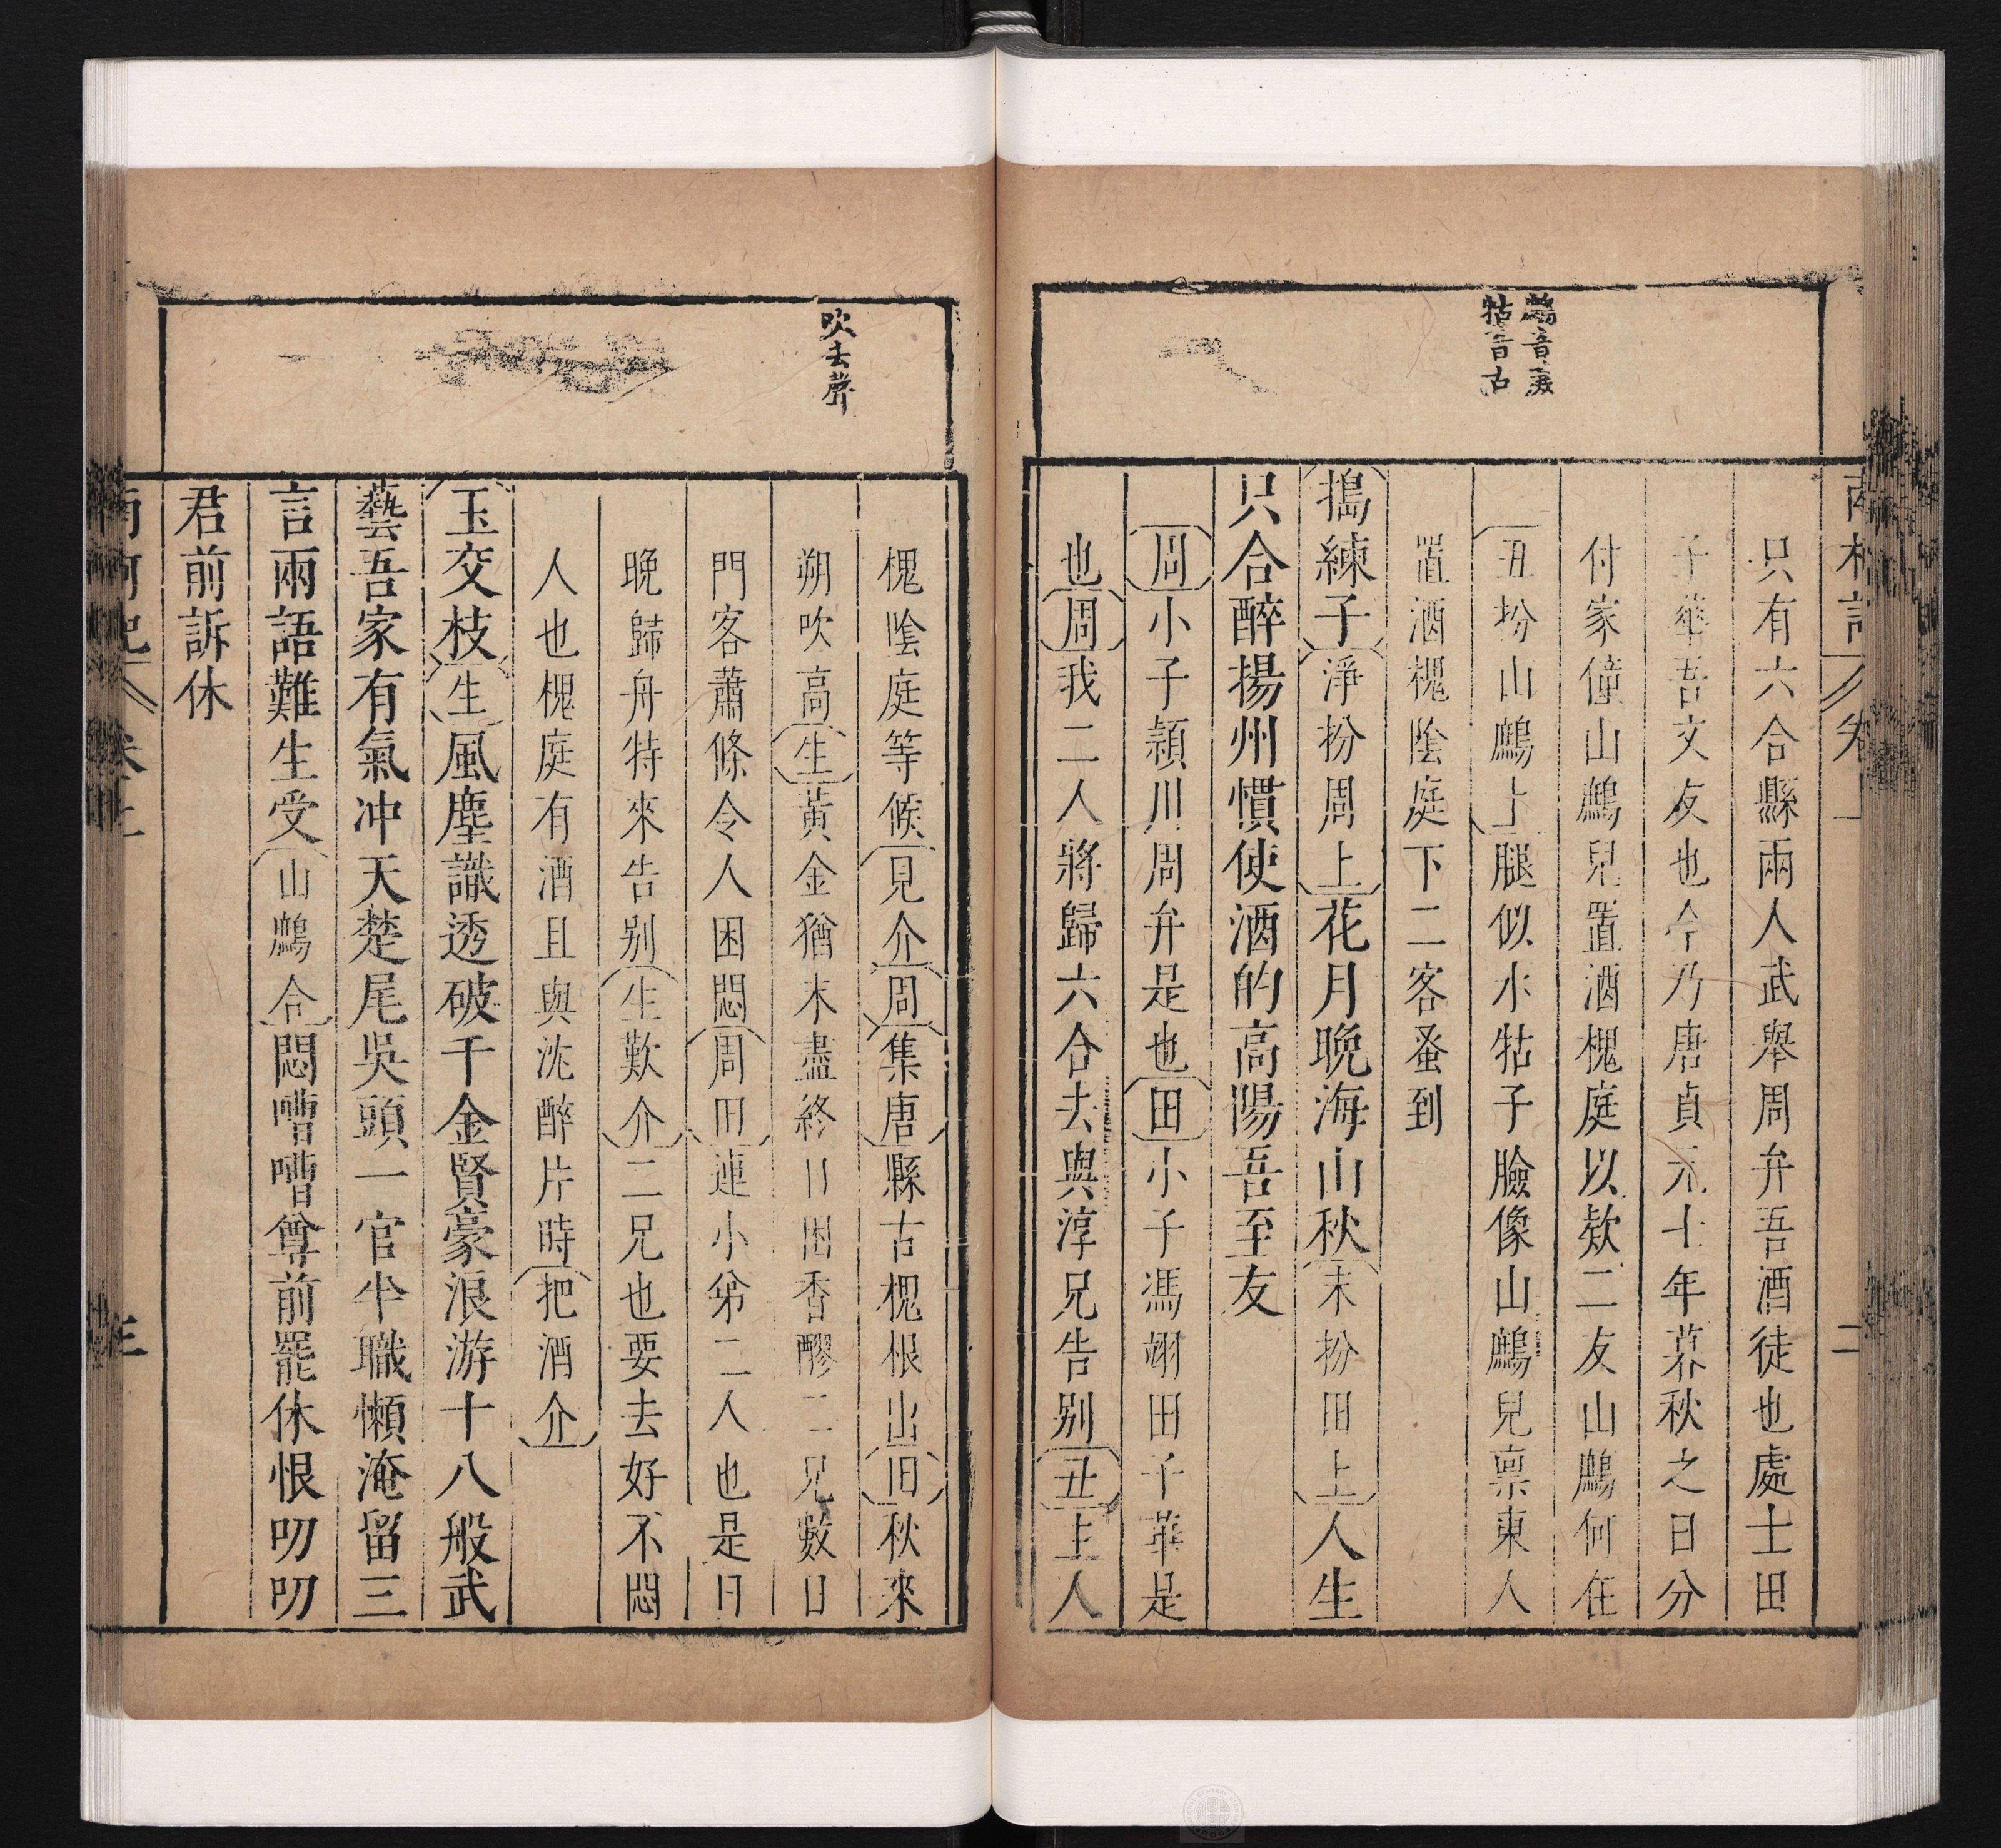 鷓音蔗
牯音古
只有六合縣兩人武舉周弁吾酒徒也處士田
子華吾文友也今乃唐貞元十年暮秋之日分
付家僮山鷓兒置酒槐庭以欵二友山鷓何在
丑扮山鷓上腿似水牯子臉像山鷓兒禀東人
置酒槐陰庭下二客蚤到
搗練子淨扮周上花月晚海山秋末扮田上人生
只合醉揚州慣使酒的高陽吾至友
周小子潁川周弁是也田小子馮翊田子華是
也周我二人將歸六合去與淳兄告别丑上人
吹去聲
槐陰庭等候見介周集唐縣古槐根出田秋來
朔吹高生黃金猶未盡終日困香醪二兄數日
門客蕭條令人困悶周田連小弟二人也是日
晚歸舟特來告别生歎介二兄也要去好不悶
人也槐庭有酒且與沈醉片時把酒介
玉交枝生風塵識透破千金賢豪浪游十八般武
藝吾家有氣冲天楚尾吳頭一官半職懶淹留三
言兩語難生受山鷓合悶嘈嘈尊前罷休恨叨叨
君前訴休